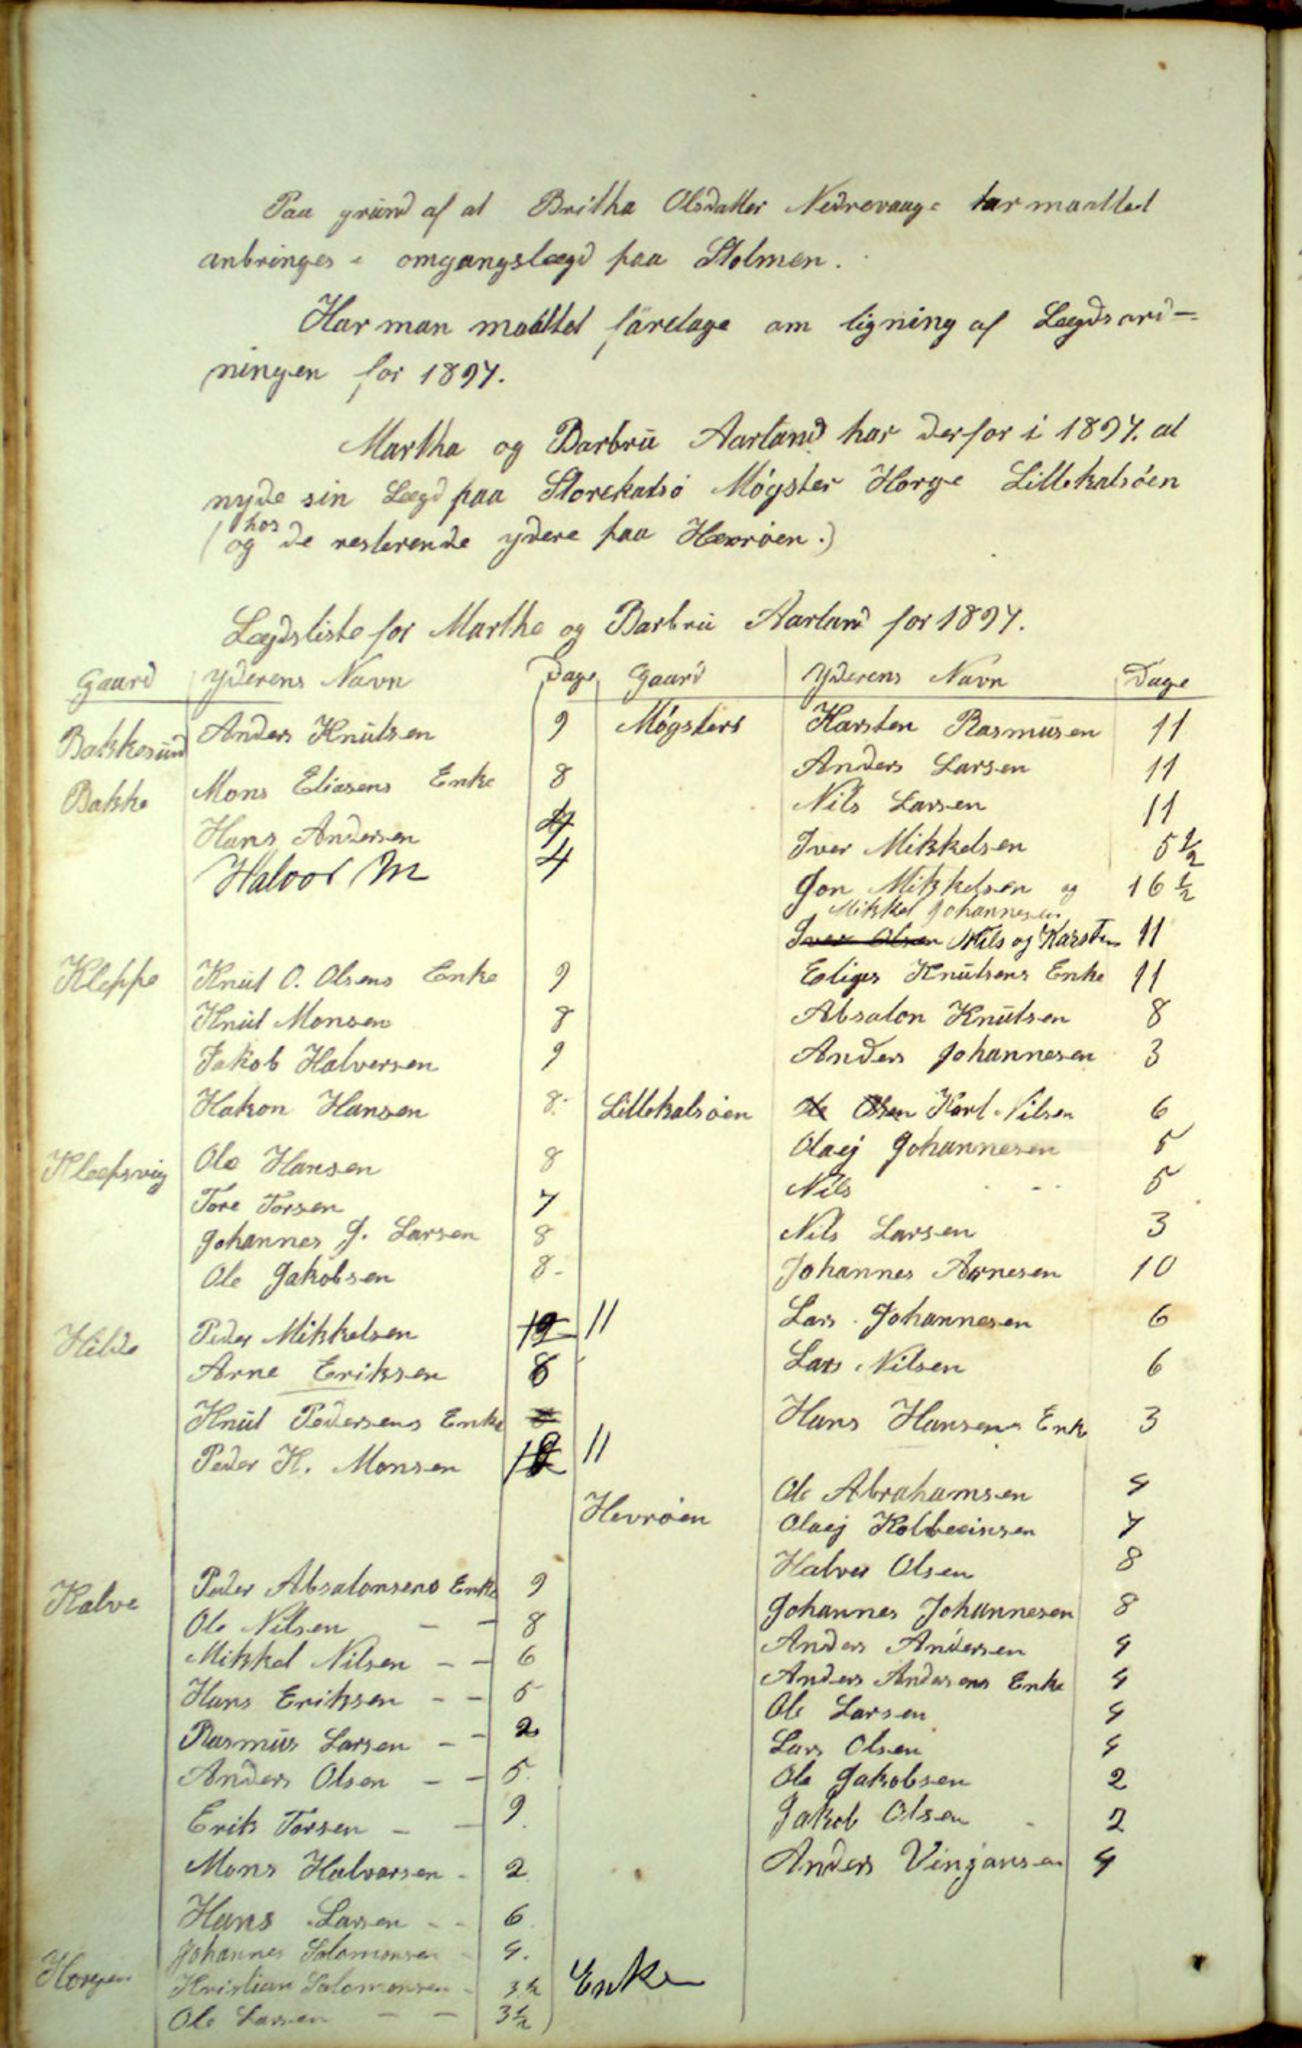 Paa grund af at Britha Olsdatter Nedrevaage har maattet
anbringes i omgangslægd paa Stolmen.
Har man maattet företage om ligning af Lægdsord=
ningen for 1897.
Martha og Barbru Aarland har derfor i 1897. at
nyde sin Lægd paa Storekalsø Møgster Horge Lillekalsöen
(og hos de resterende ydere paa Hevröen.)
Lægdsliste for Martha og Barbru Aarland for 1897.
Gaard Yderens Navn Dage Gaard Yderens Navn Dage
Bakkesund Anders Knutsen 9 Møgsters Karsten Rasmusen 11
Bakke Mons Eliasens Enke 8 Anders Larsen 11
Hans Andersen 4 Nils Larsen 11
Halvor M 4 Iver Mikkelsen 5 1/2
Jon Mikkelsen og 16 1/2
Mikkel Johannesen
Iver Olsen Nils og Karsten 11
Kleppe Knut O. Olsens Enke 9 Eliges Knutsens Enke 11
Knut Monsen 8 Absalon Knutsen 8
Jakob Halversen 9 Anders Johannesen 3
Hakon Hansen 8. Lillekalsöen Ole Olsen Karl Nilsen 6
Kleppsvig Ole Hansen 8 Olaej Johannesen 5
Tore Torsen 7 Nils - -- 5
Johannes J. Larsen 8 Nils Larsen 3
Ole Jakobsen 8- Johannes Arnesen 10
Hilde Peder Mikkelsen 12 11 Lars Johannesen 6
Arne Eriksen 8 Lars Nilsen 6
Knut Pedersens Enke Hans Hansens Enk 3
Peder H. Monsen 11
Hevröen Ole Abrahamsen 4
Olaej Kolbeeinsen 7
Halver Olsen 8
Kalve Peder Absalonsens Enke 9 Johannes Johannesen 8
Ole Nilsen - - 8 Anders Andersen 4
Mikkel Nilsen - - 6 Anders Andersens Enke 4
Hans Eriksen - - 5 Ole Larsen 4
Rasmus Larsen - - 2 Lars Olsen 4
Anders Olsen - - 5. Ole Jakobsen 2
Erik Torsen - - 9. Jakob Olsen - 2
Mons Halvorsen - 2 Anders Vingansen 4
Hans Larsen - - 6.
Johannes Solomonsen - 4.
Horgen Kristian Salomonsen - 3 1/2 Enke
Ole Larsen - - 3 1/2